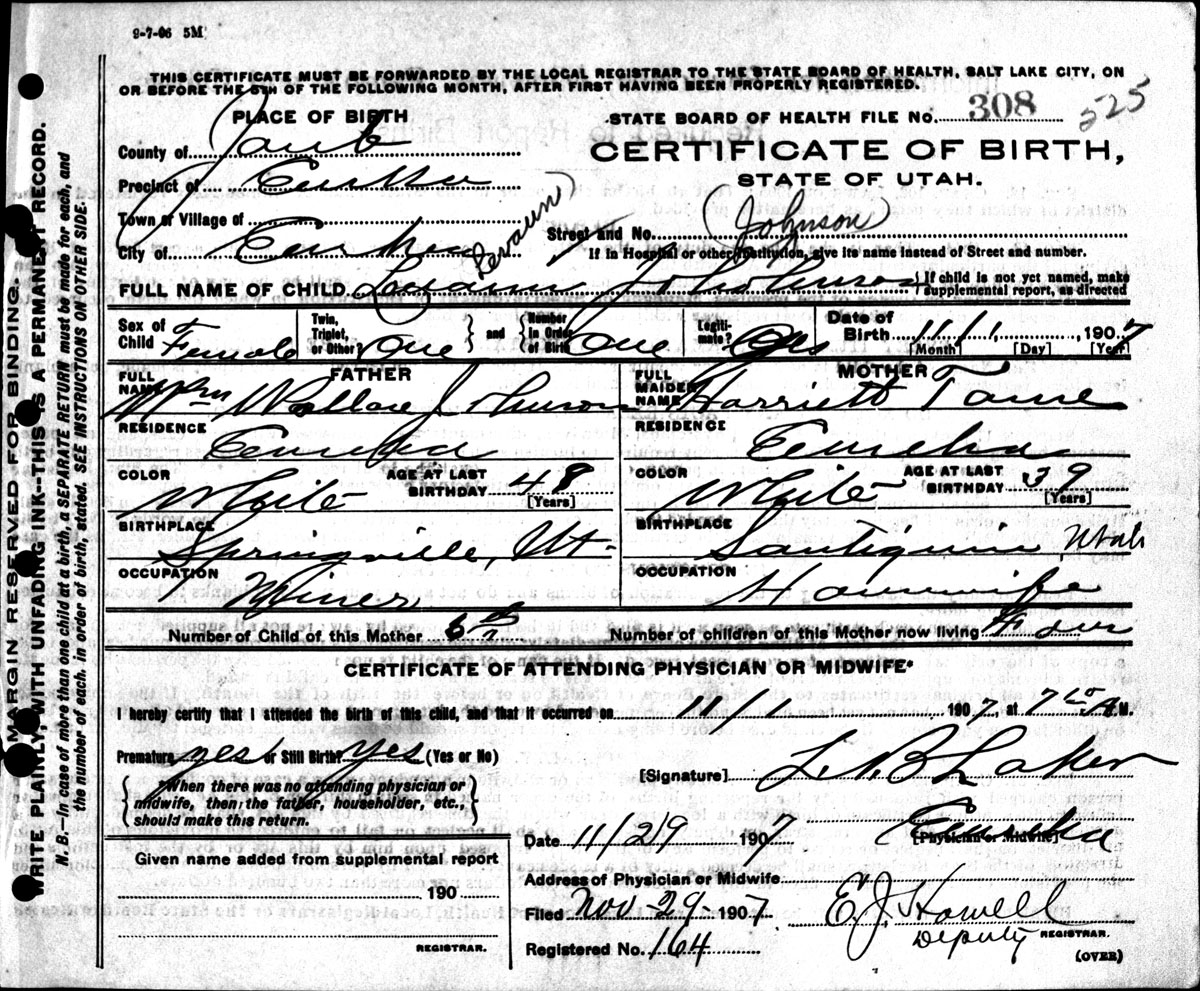 9-7-06 5M
THIS CERTIFICATE MUST BE FORWARDED BY THE LOCAL REGISTRAR TO THE STATE BOARD OF HEALTH, SALT LAKE CITY, ON
OR BEFORE THE 5TH OF THE FOLLOWING MONTH, AFTER FIRST HAVING BEEN PROPERLY REGISTERED.
PLACE OF BIRTH
STATE BOARD OF HEALTH FILE No. 308 525
County of Juab
CERTIFICATE OF BIRTH,
Precinct of Eureka
STATE OF UTAH.
Town or Village of
Street and No. (Johnson)
City of Eureka
If in Hospital or other institution, give its name instead of Street and number.
FULL NAME OF CHILD Johnson
If child is not yet named, make supplemental report, as directed
Sex of Child Female
Twin, Triplet, or Other One
and Number in Order of Birth One
Legitimate? Yes
Date of Birth 11/1, 1907
[Month] [Day] [Year]
FATHER
MOTHER
FULL NAME Wm Wallace Johnson
FULL MAIDEN NAME Harriett Tame
RESIDENCE Eureka
RESIDENCE Eureka
COLOR White AGE AT LAST BIRTHDAY 48 [Years]
COLOR White AGE AT LAST BIRTHDAY 39 [Years]
BIRTHPLACE Springville, Ut.
BIRTHPLACE Santiquin Utah
OCCUPATION Miner
OCCUPATION Housewife
Number of Child of this Mother 6th
Number of children of this Mother now living Four
CERTIFICATE OF ATTENDING PHYSICIAN OR MIDWIFE*
I hereby certify that I attended the birth of this child, and that it occurred on 11/1 1907, at 7 A.M.
Premature yes or Still Birth? yes (Yes or No)
[Signature] Laker
When there was no attending physician or midwife, then the father, householder, etc., should make this return.
Eureka
[Physician or Midwife]
Date 11/29 1907
Given name added from supplemental report
190
Address of Physician or Midwife
Filed Nov-29-1907 E.J. Howell
Deputy REGISTRAR.
REGISTRAR.
Registered No. 164
(OVER)
MARGIN RESERVED FOR BINDING.
WRITE PLAINLY, WITH UNFADING INK--THIS IS A PERMANENT RECORD.
N. B.--In case of more than one child at a birth, a SEPARATE RETURN must be made for each, and
the number of each, in order of birth, stated. SEE INSTRUCTIONS ON OTHER SIDE.